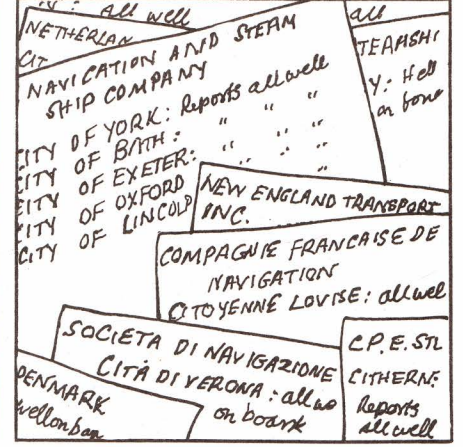 : All well
NETHERLAN
CIT
NAVICATION AND STEAM
SHIP COMPANY
CITY OF YORK: Reports all well
CITY OF BATH: " " "
CITY OF EXETER: " " "
CITY OF OXFORD " " "
CITY OF LINCOLD "
all
TEAMSHI
Y: Hell
on boar
NEW ENGLAND TRANSPORT
INC.
COMPAGNIE FRANCAISE DE
NAVIGATION
CITOYENNE LOVISE: all wel
SOCIETA DI NAVIGAZIONE
CITÁ DI VERONA: all w
on board
C.P.E. STL
CITHERN:
Reports
all well
DENMARK
well on boa